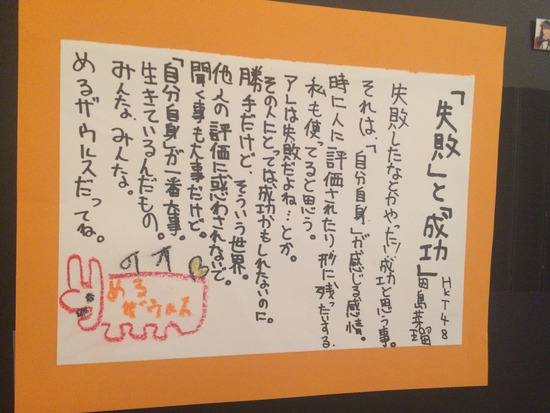 「失敗」と「成功」
HKT48
田島芽瑠
失敗したなとかやった!成功と思う事。
それは、「自分自身」が感じる感情。
時に人に評価されたり形に残ったりする。
私も使ってると思う。
アレは失敗だよね…とか。
その人にとっては成功かもしれないのに。
勝手だけど、そういう世界。
他人の評価に惑わされないで。
聞く事も大事だけど。
「自分自身」が一番大事。
生きているんだもの。
みんな、みんな。
めるザウルスだってね。
める
ザウルス